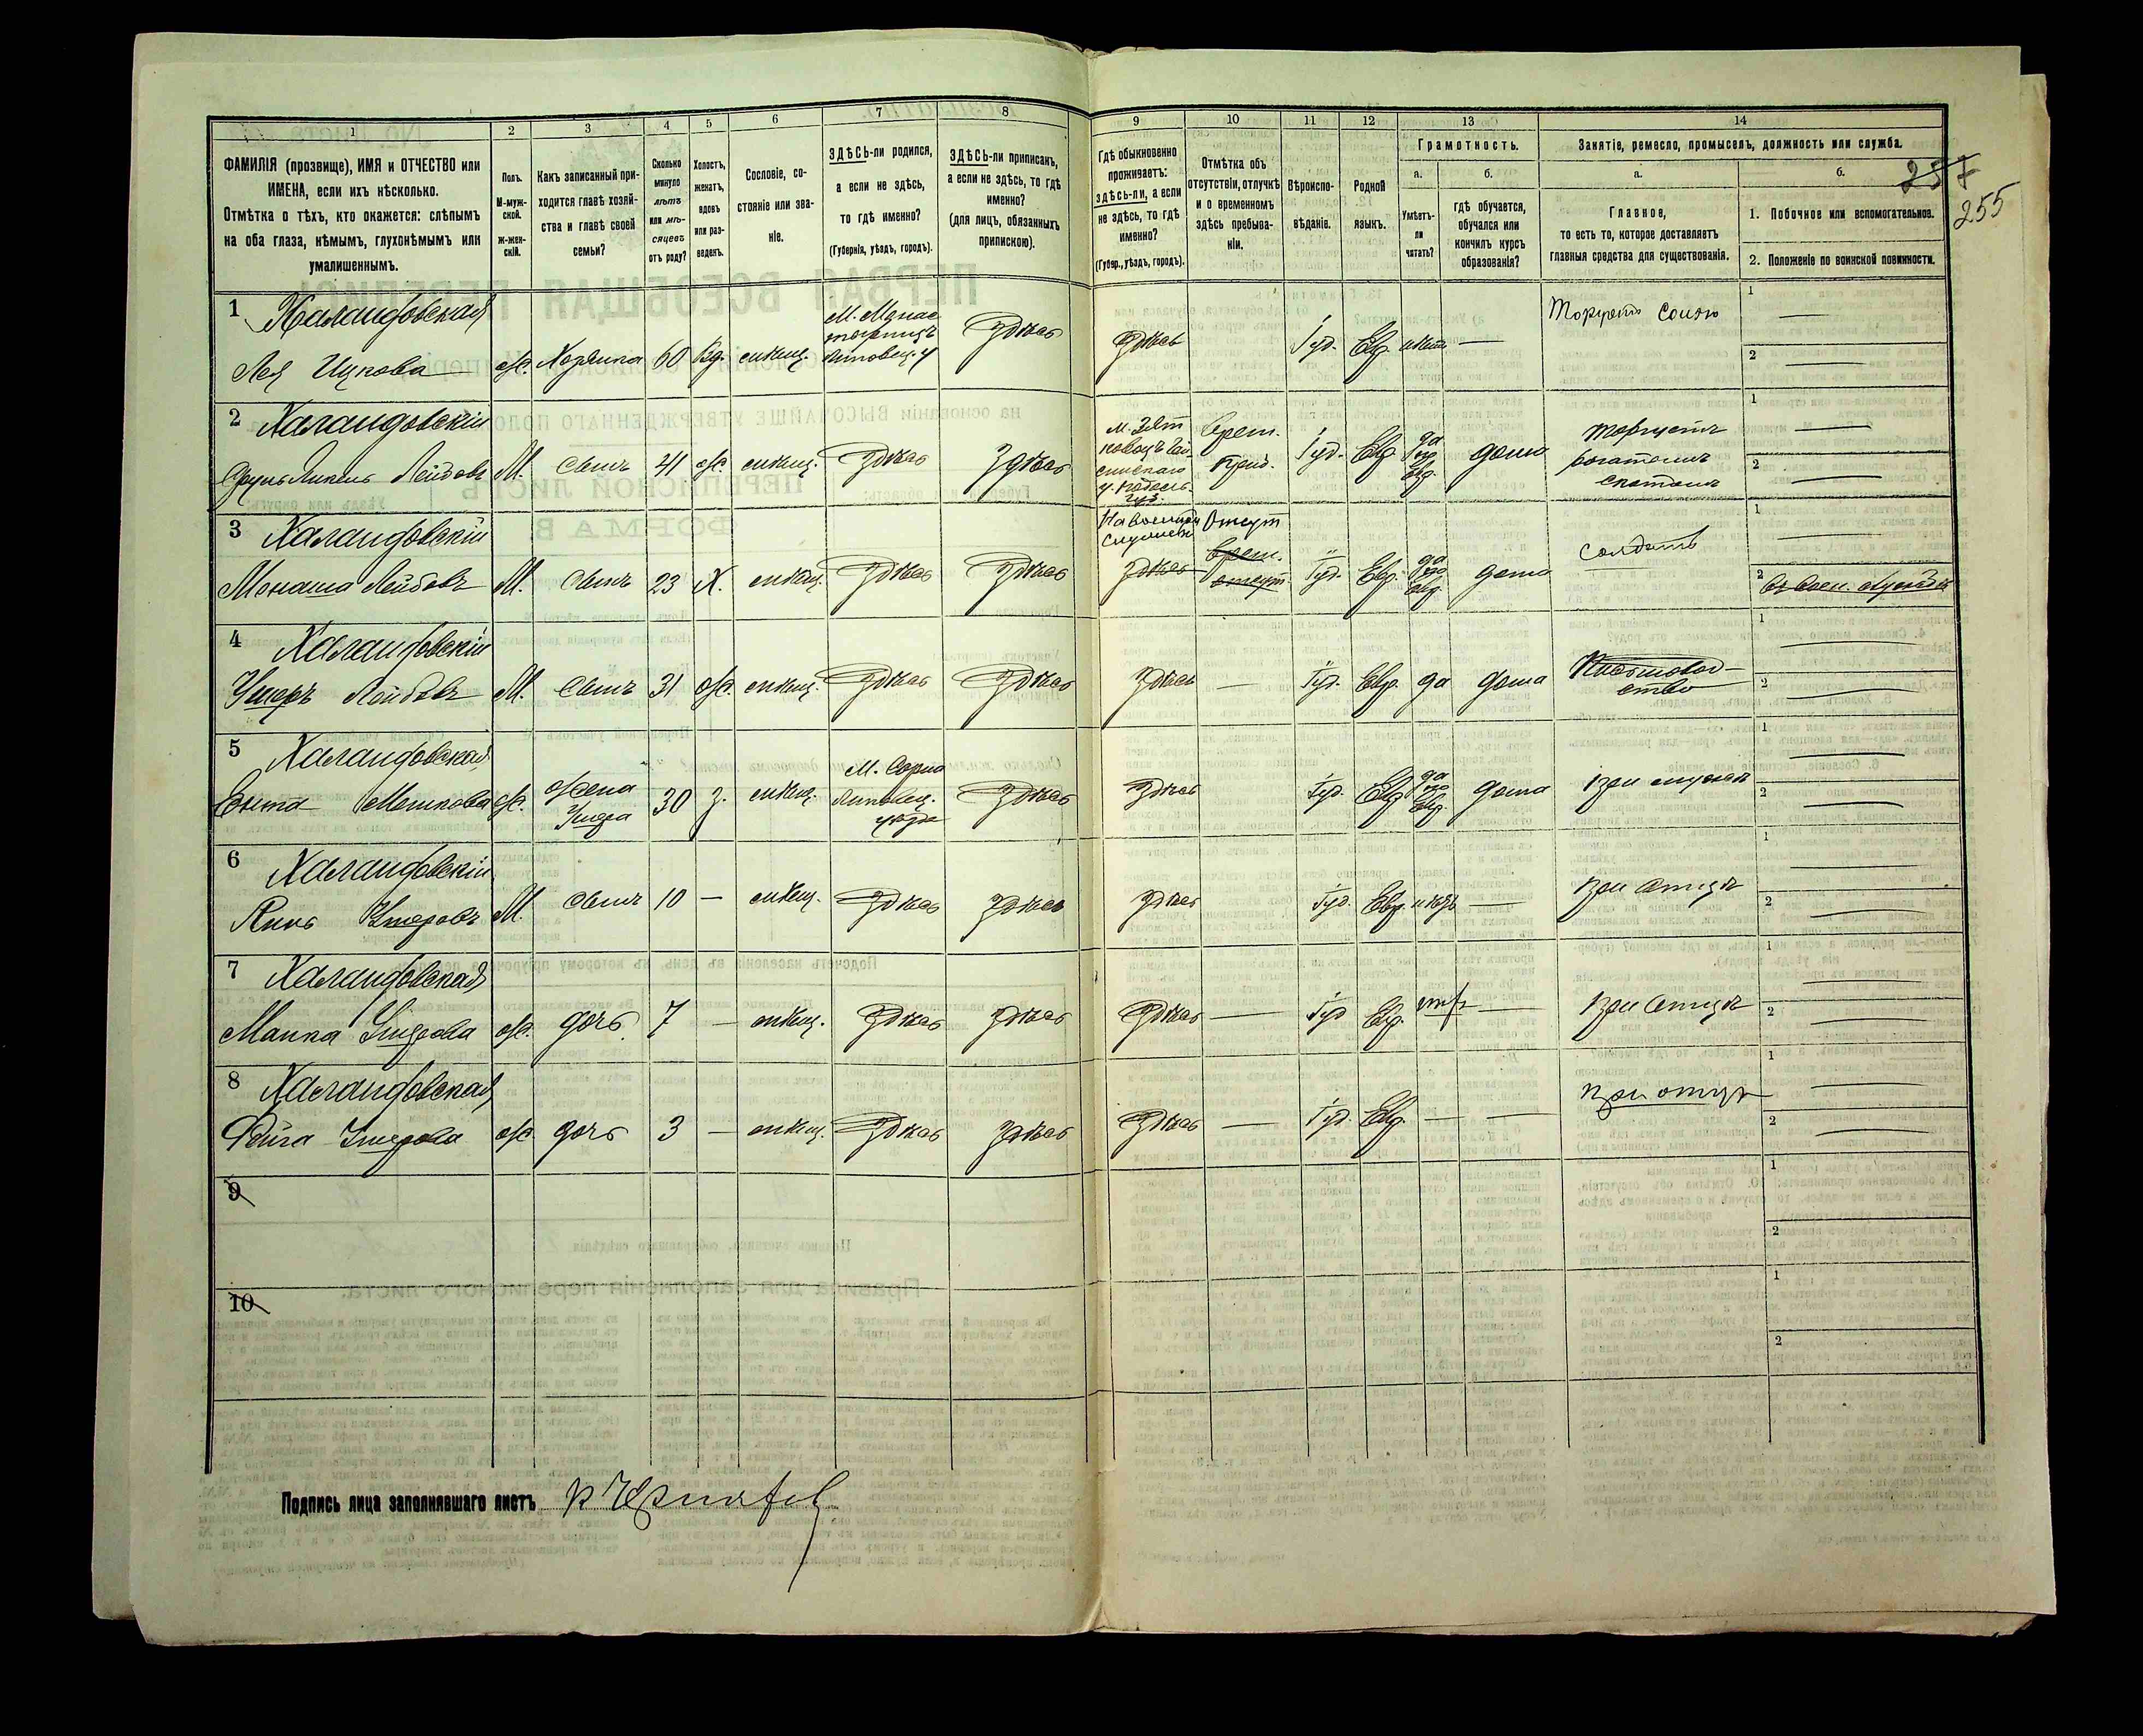 1
2
3
4
5
6
7
8
9
10
11
12
13
14
ФАМИЛІЯ (прозвище), ИМЯ и ОТЧЕСТВО или
ИМЕНА, если ихъ нѣсколько.
Отмѣтка о тѣхъ, кто окажется: слѣпымъ
на оба глаза, нѣмымъ, глухонѣмымъ или
умалишеннымъ.
Полъ.
М-муж-
ской.
ж-жен-
скій.
Какъ записанный при-
ходится главѣ хозяй-
ства и главѣ своей
семьи?
Сколько
минуло
лѣтъ
или мѣ-
сяцевъ
отъ роду?
Холостъ,
женатъ,
вдовъ
или раз-
веденъ.
Сословіе, со-
стояніе или зва-
ніе.
ЗДѢСЬ-ли родился,
а если не здѣсь,
то гдѣ именно?
(Губернія, уѣздъ, городъ).
ЗДѢСЬ-ли приписанъ,
а если не здѣсь, то гдѣ
именно?
(для лицъ, обязанныхъ
припискою).
Гдѣ обыкновенно
проживаетъ:
здѣсь-ли, а если
не здѣсь, то гдѣ
именно?
(Губер., уѣздъ, городъ).
Отмѣтка объ
отсутствіи, отлучкѣ
и о временномъ
здѣсь пребыва-
ніи.
Вѣроиспо-
вѣданіе.
Родной
языкъ.
Грамотность.
а.
Умѣетъ-
ли
читать?
б.
гдѣ обучается,
обучался или
кончилъ курсъ
образованія?
Занятіе, ремесло, промыселъ, должность или служба.
а.
Главное,
то есть то, которое доставляетъ
главныя средства для существованія.
б.
1. Побочное или вспомогательное.
2. Положеніе по воинской повинности.
257
255
1 Халаидовская
Лея Ицкова ж. Хозяйка 60 Вд. мѣщ. Здѣсь Здѣсь Іуд. Евр. нѣтъ —
2 Халаидовскій
Лейбовъ М. сынъ 41 ж. мѣщ. Здѣсь Здѣсь Іуд. Евр. да дома
торгуетъ
рогатымъ
скотомъ
3 Халаидовскій
Монаша Лейбовъ М. сынъ 23 Х. мѣщ. Здѣсь Здѣсь Здѣсь Іуд. Евр. да дома солдатъ
Отсут
4 Халаидовскій
Ушеръ Лейбовъ М. сынъ 31 ж. мѣщ. Здѣсь Здѣсь Здѣсь — Іуд. Евр. да дома
5 Халаидовская
Ента Мошкова ж. жена
Ушера 30 З. мѣщ. Здѣсь Здѣсь Іуд. Евр. да дома при мужѣ
6 Халаидовскій
Ушеровъ М. сынъ 10 — мѣщ. Здѣсь Здѣсь Здѣсь Іуд. Евр. нѣтъ — при отцѣ
7 Халаидовская
Малка Ушерова ж. дочь 7 — мѣщ. Здѣсь Здѣсь Здѣсь — Іуд Евр. нѣтъ — при отцѣ
8 Халаидовская
Фейга Ушерова ж. дочь 3 — мѣщ. Здѣсь Здѣсь Здѣсь — Іуд. Евр. — — при отцѣ
9
10
Подпись лица заполнявшаго листъ